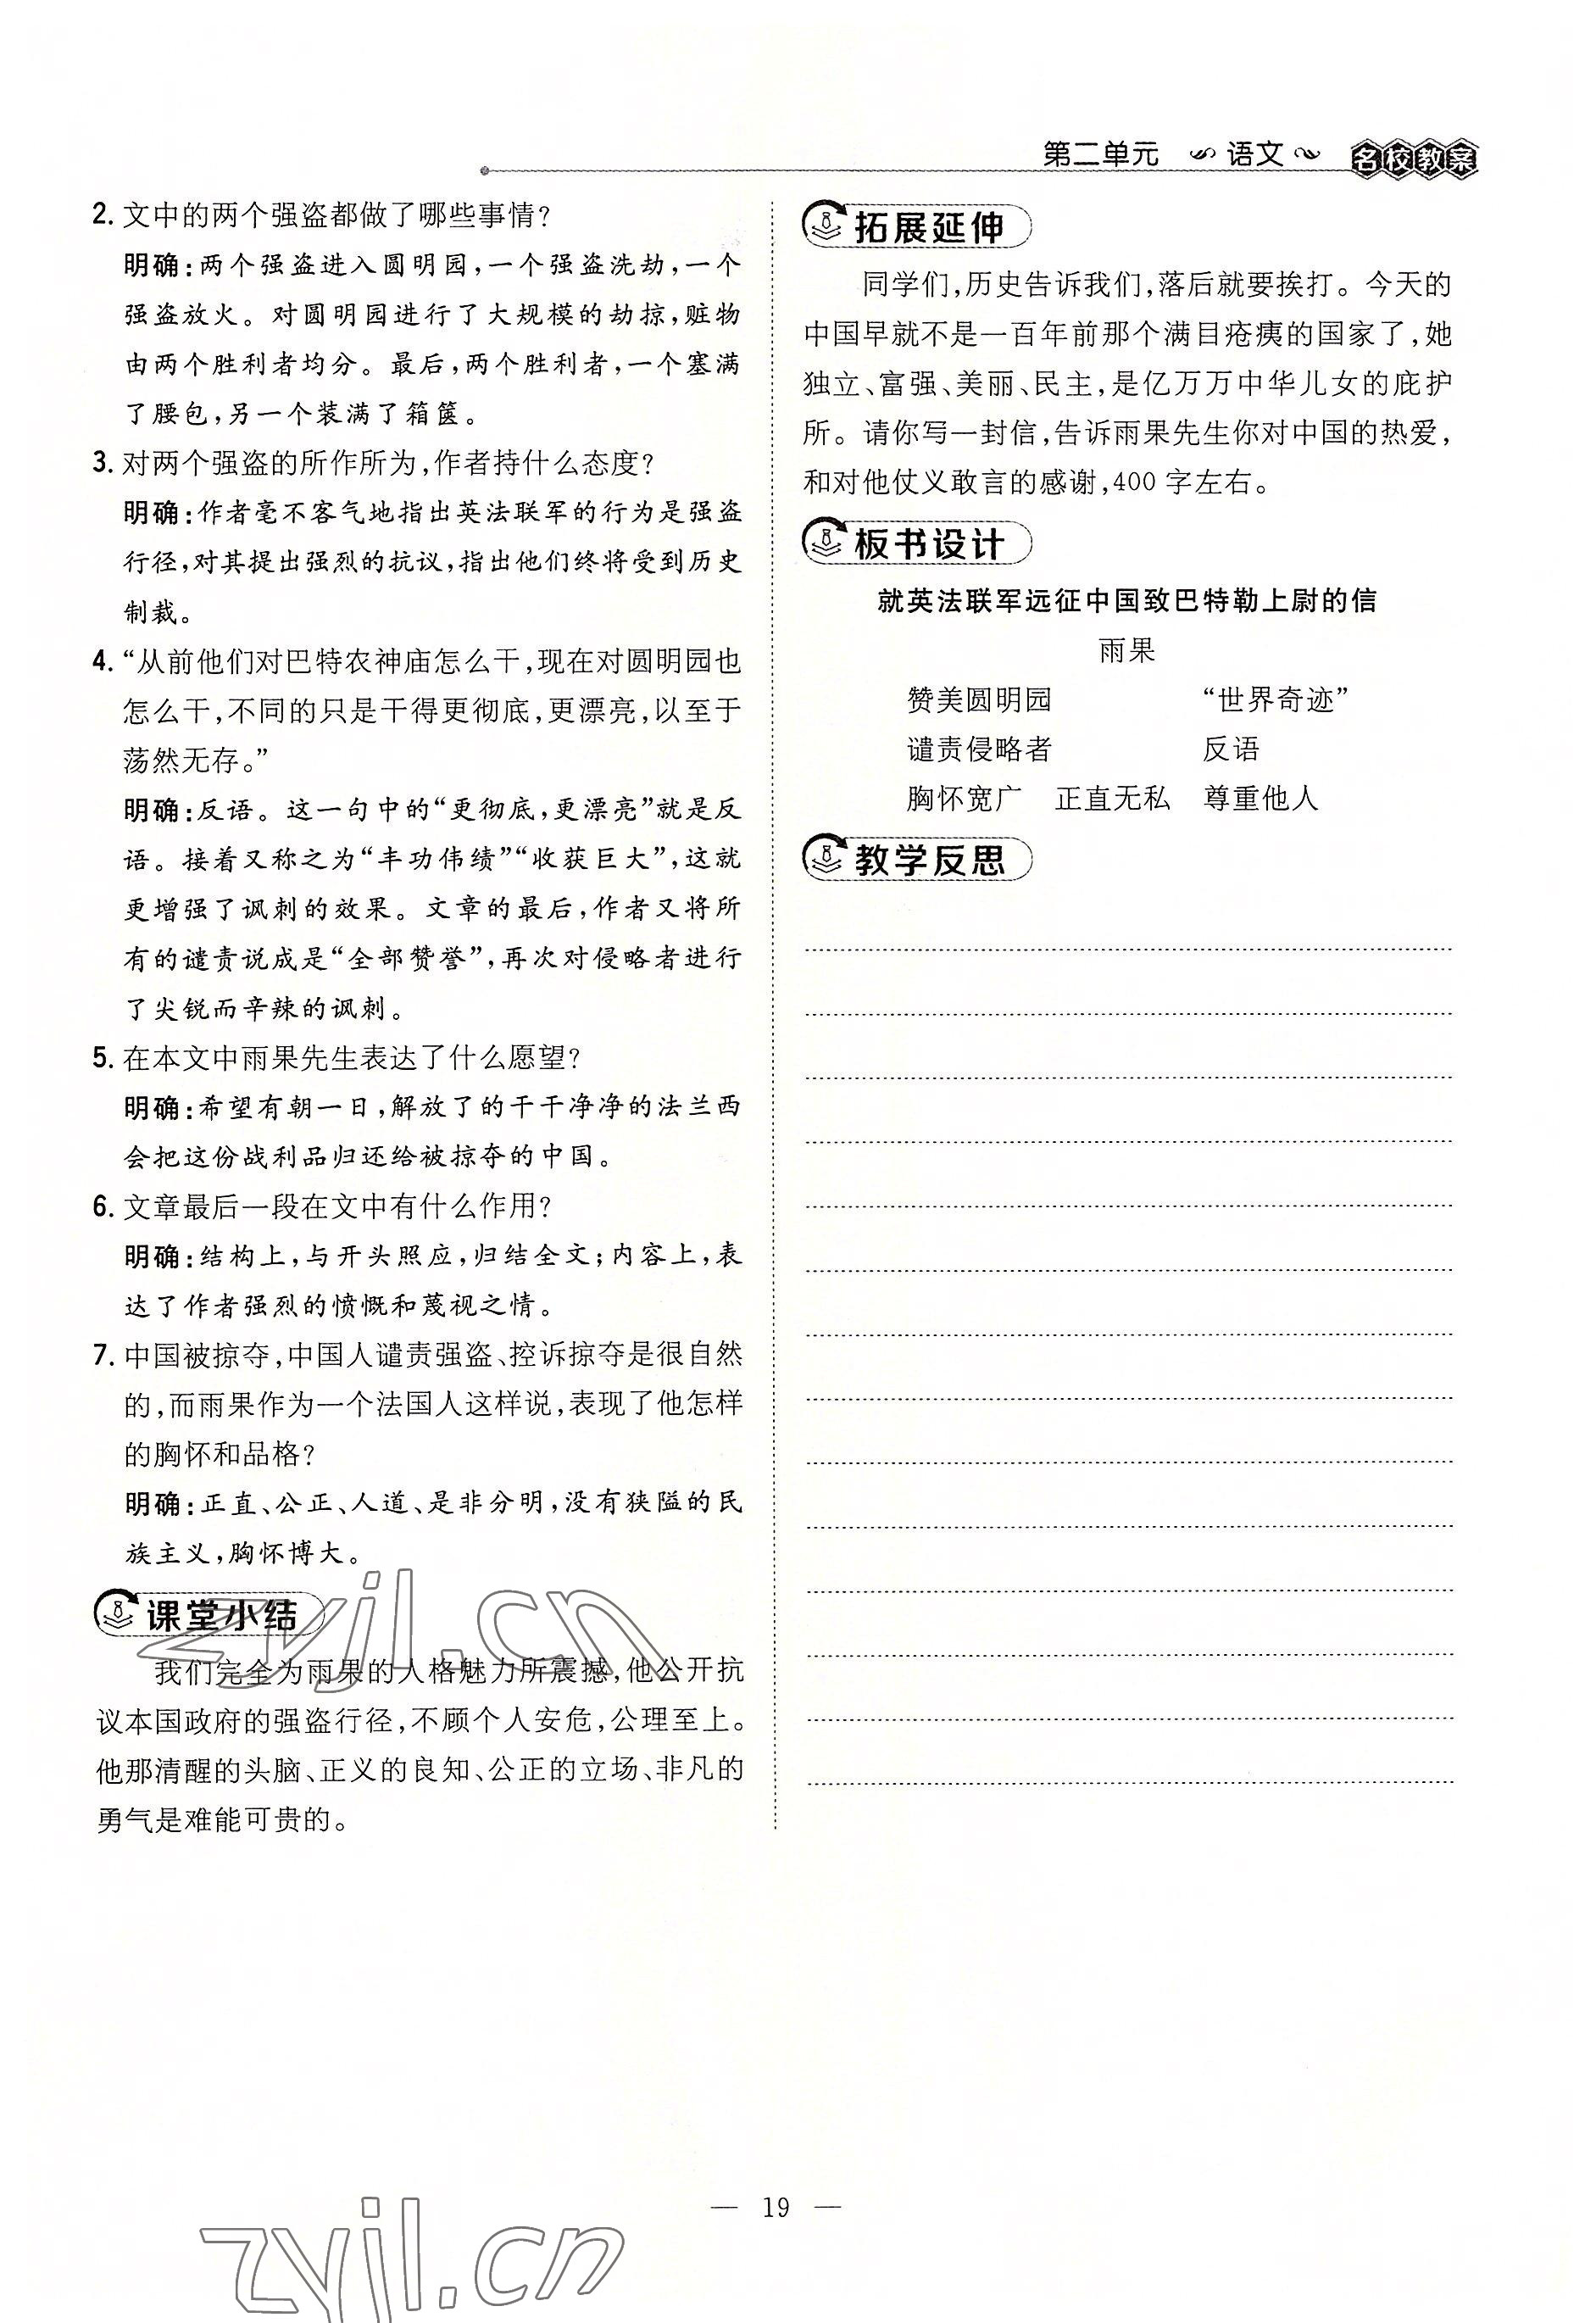 第二单元 语文 名校教案
2. 文中的两个强盗都做了哪些事情?
明确:两个强盗进入圆明园,一个强盗洗劫,一个
强盗放火。对圆明园进行了大规模的劫掠,赃物
由两个胜利者均分。最后,两个胜利者,一个塞满
了腰包,另一个装满了箱箧。
3. 对两个强盗的所作所为,作者持什么态度?
明确:作者毫不客气地指出英法联军的行为是强盗
行径,对其提出强烈的抗议,指出他们终将受到历史
制裁。
4. “从前他们对巴特农神庙怎么干,现在对圆明园也
怎么干,不同的只是干得更彻底,更漂亮,以至于
荡然无存。”
明确:反语。这一句中的“更彻底,更漂亮”就是反
语。接着又称之为“丰功伟绩”“收获巨大”,这就
更增强了讽刺的效果。文章的最后,作者又将所
有的谴责说成是“全部赞誉”,再次对侵略者进行
了尖锐而辛辣的讽刺。
5. 在本文中雨果先生表达了什么愿望?
明确:希望有朝一日,解放了的干干净净的法兰西
会把这份战利品归还给被掠夺的中国。
6. 文章最后一段在文中有什么作用?
明确:结构上,与开头照应,归结全文;内容上,表
达了作者强烈的愤慨和蔑视之情。
7. 中国被掠夺,中国人谴责强盗、控诉掠夺是很自然
的,而雨果作为一个法国人这样说,表现了他怎样
的胸怀和品格?
明确:正直、公正、人道、是非分明,没有狭隘的民
族主义,胸怀博大。
课堂小结
我们完全为雨果的人格魅力所震撼,他公开抗
议本国政府的强盗行径,不顾个人安危,公理至上。
他那清醒的头脑、正义的良知、公正的立场、非凡的
勇气是难能可贵的。
拓展延伸
同学们,历史告诉我们,落后就要挨打。今天的
中国早就不是一百年前那个满目疮痍的国家了,她
独立、富强、美丽、民主,是亿万万中华儿女的庇护
所。请你写一封信,告诉雨果先生你对中国的热爱,
和对他仗义敢言的感谢,400字左右。
板书设计
就英法联军远征中国致巴特勒上尉的信
雨果
赞美圆明园 “世界奇迹”
谴责侵略者 反语
胸怀宽广 正直无私 尊重他人
教学反思
— 19 —
zyjl.cn
zyjl.cn